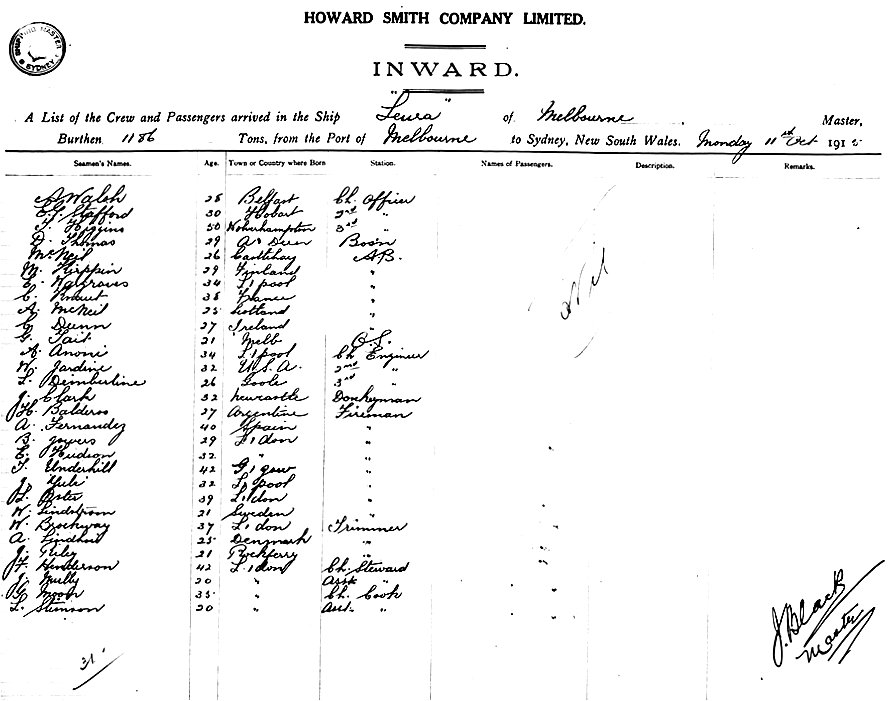 HOWARD SMITH COMPANY LIMITED.
SHIPPING MASTER
SYDNEY
INWARD.
A List of the Crew and Passengers arrived in the Ship "Leura" of Melbourne Master,
Burthen 1186 Tons, from the Port of Melbourne to Sydney, New South Wales. Monday 11th Oct 191
Seamen's Names. Age. Town or Country where Born Station. Names of Passengers. Description. Remarks.
A Walsh 28 Belfast Ch. Officer
E. Stafford 30 Hobart 2nd "
T. Higgins 50 Wolverhampton 3rd "
D. Thomas 29 Bos'n
McNeil 26 AB.
M. Kippin 29 Finland "
E. Hargraves 34 L'pool "
C. 38 France "
A. McNeil 25 Scotland "
C. Dunn 27 Ireland "
G. Tait 21 Melb O.S.
A. Anoni 34 L'pool Ch Engineer
W. Jardine 32 U.S.A. 2nd "
L. Demberline 26 Goole 3rd "
J. Clark 32 Newcastle Donkeyman
H. Balderos 27 Argentine Fireman
A. Fernandez 40 Spain "
B. 29 L'don "
E. Hudson 32 " "
T. Underhill 42 G'gow "
J. 32 L'pool "
39 L'don "
W. Lindstrom 21 Sweden "
W. Brockway 37 L'don Trimmer
A. 25 Denmark "
J. Riley 21 Rockferry "
F. Henderson 42 L'don Ch. Steward
J. 20 " Asst "
G. Moon 35 " Ch. Cook
L. Stimson 20 " Asst. "
Nil
31
J. Black
Master